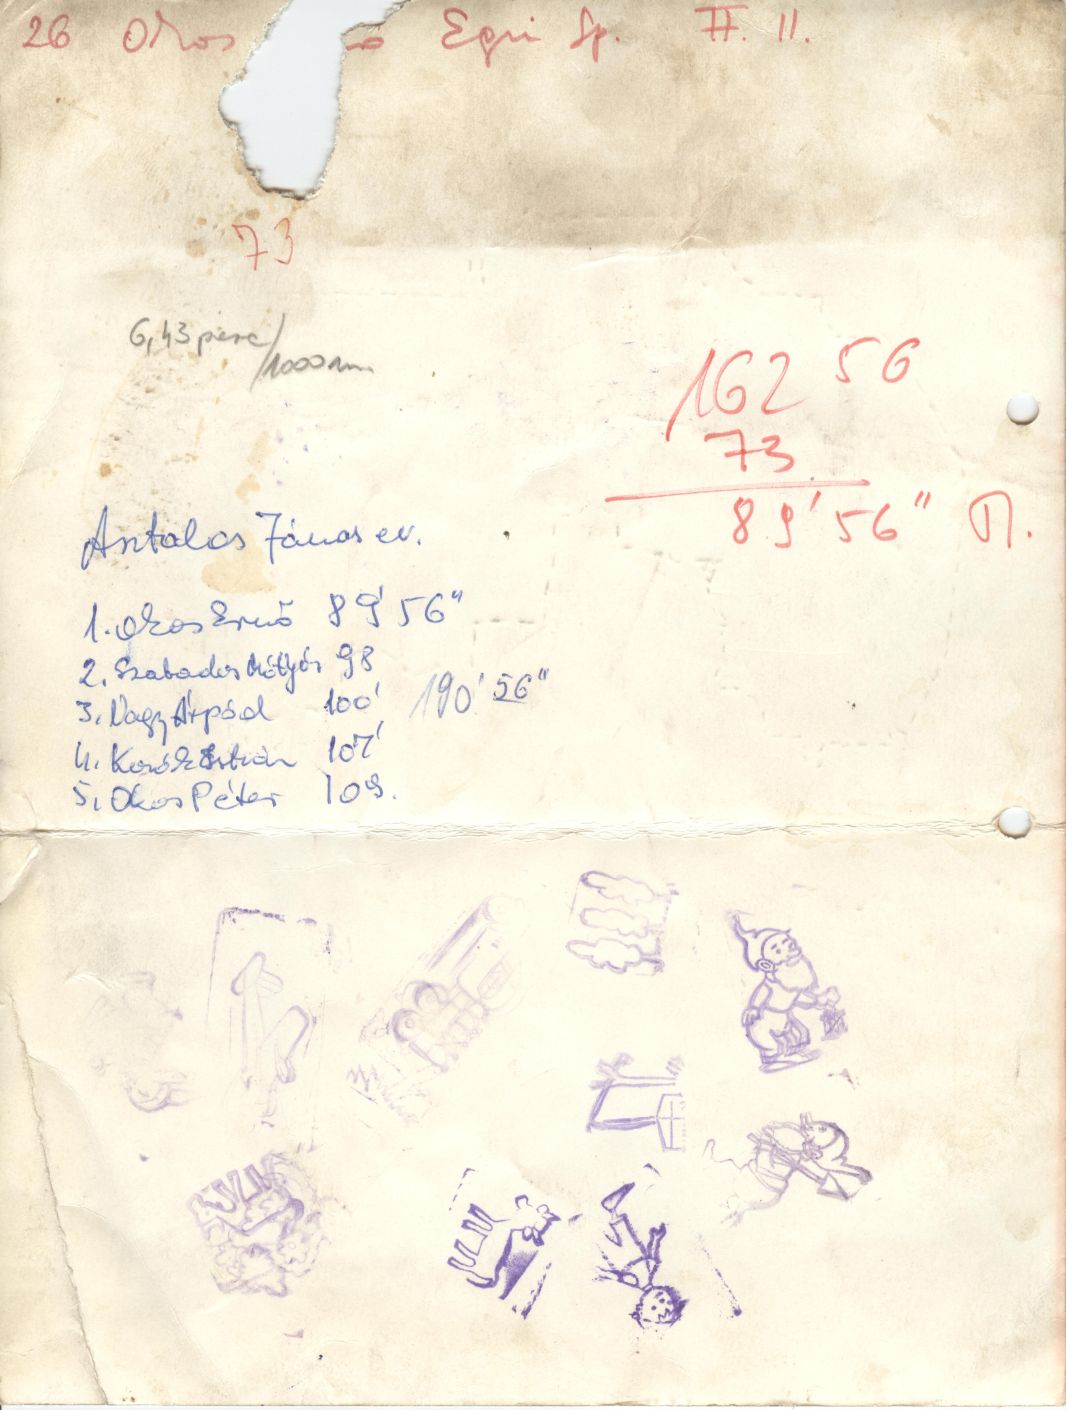 26 Okos Egri Sp. II. 11.
73
6,43 perc/1000 m
162 56
73
89' 56" II.
Asztalos János ev.
1. Okos Ernő 89' 56"
2. Szabados Mátyás 98
3. Nagy Árpád 100' 190' 56"
4. István 107'
5. Okos Péter 109.